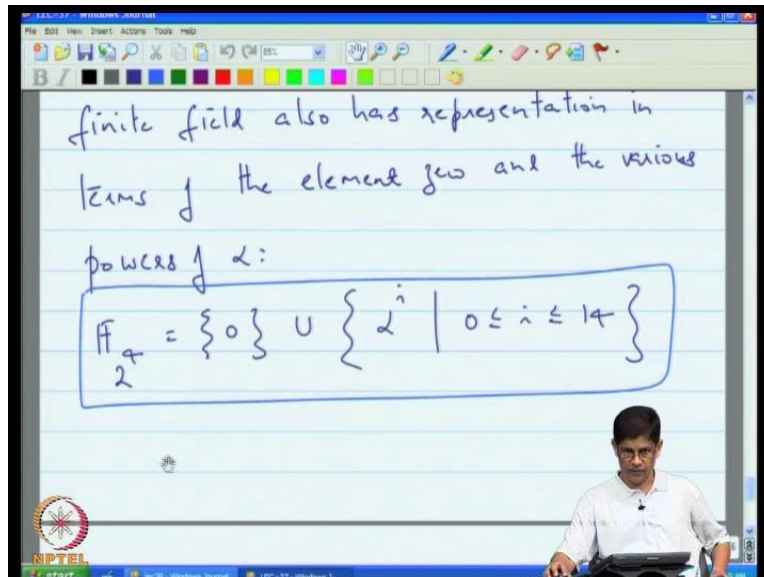 LEC-37 - Windows Journal
File Edit View Insert Actions Tools Help
85%
B I
finite field also has representation in
terms of the element zero and the various
powers of α:
𝔽_{2^4} = {0} ∪ {α^i | 0 ≤ i ≤ 14}
NPTEL
start